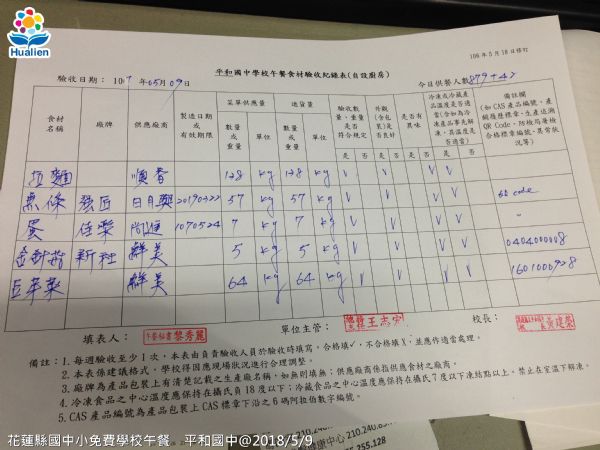 Hualien
106年5月18日修訂
平和國中學校午餐食材驗收紀錄表(自設廚房)
驗收日期: 107年05月09日 今日供餐人數879+47
食材名稱 廠牌 供應廠商 製造日期或有效期限 菜單供應量 進貨量 驗收數量、重量是否符合 外觀(含包裝)是否良好 是否有異味 冷凍或冷藏產品溫度是否適當(含如為冷凍產品事先解凍,其溫度是否適當) 備註欄(如CAS產品編號、產銷履歷標章、生產追溯QR Code、防檢局署檢合格標章編號、異常狀況等)
數量或重量 單位 數量或重量 單位
是 否 是 否 是 否 是 否
拉麵 順香 128 kg 128 kg V V V V
57 kg 57 kg V V V V QR code
蛋 1070524 7 kg 7 kg V V V V 〃
金針菇 新社 鮮美 5 kg 5 kg V V V V
豆芽菜 鮮美 64 kg 64 kg V V V V
填表人: 午餐秘書 黎秀麗 單位主管: 王志宏 校長: 黃建榮
備註:1.每週驗收至少1次,本表由負責驗收人員於驗收時填寫,合格填✓,不合格填X;並應作適當處理。
2.本表係建議格式,學校得因應現場狀況進行合理調整。
3.廠牌為產品包裝上有清楚記載之生產廠名稱,如無則填無;供應廠商係指供應食材之廠商。
4.冷凍食品之中心溫度應保持在攝氏負18度以下;冷藏食品之中心溫度應保持在攝氏7度以下凍結點以上。禁止在室溫下解凍。
5.CAS產品編號為產品包裝上CAS標章下沿之6碼阿拉伯數字編號。
花蓮縣國中小免費學校午餐 平和國中@2018/5/9